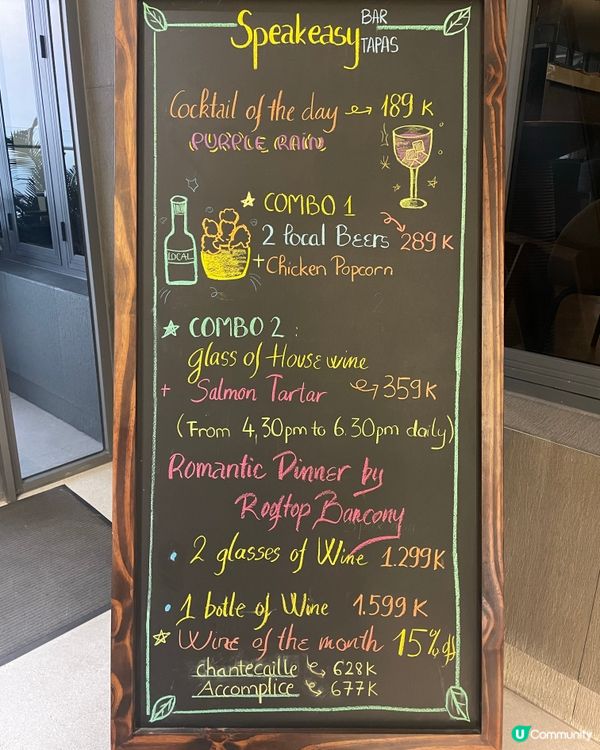 Speakeasy BAR
TAPAS
Cocktail of the day 189 K
PURPLE RAIN
COMBO 1
2 Local Beers 289 K
LOCAL
+ Chicken Popcorn
COMBO 2 :
glass of House wine
+ Salmon Tartar 359 K
(From 4,30pm to 6.30pm daily)
Romantic Dinner by
Rooftop Barcony
• 2 glasses of Wine 1.299K
• 1 botle of Wine 1.599 K
Wine of the month 15% off
chantecaille 628K
Accomplice 677K
U Community